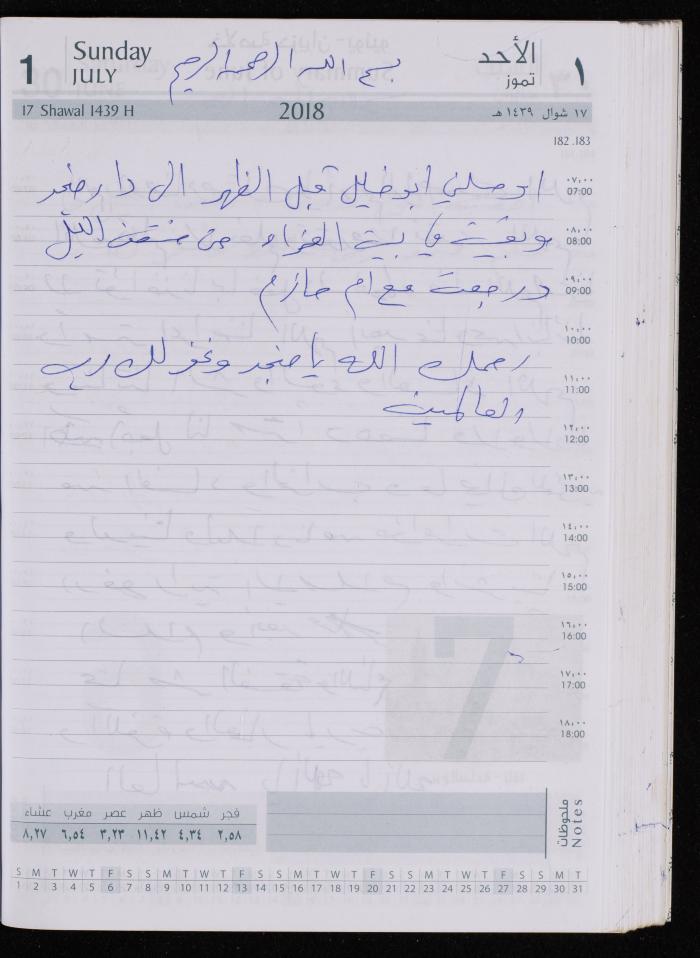 1 Sunday JULY بسم الله الرحمن الرحيم الأحد تموز ١
17 Shawal 1439 H 2018 ١٧ شوال ١٤٣٩ هـ
182 .183
٠٧,٠٠
07:00
اوصلني ابو خليل قبل الظهر الى دار منجد
٠٨,٠٠
08:00
وبقيت في بيت العزاء حتى منتصف الليل
٠٩,٠٠
09:00
ورجعت مع ام حازم
١٠,٠٠
10:00
رحمك الله يا منجد وغفر لك رب
١١,٠٠
11:00
العالمين
١٢,٠٠
12:00
١٣,٠٠
13:00
١٤,٠٠
14:00
١٥,٠٠
15:00
١٦,٠٠
16:00
١٧,٠٠
17:00
١٨,٠٠
18:00
7
فجر شمس ظهر عصر مغرب عشاء
٢,٥٨ ٤,٣٤ ١١,٤٢ ٣,٢٣ ٦,٥٤ ٨,٢٧
ملحوظات
Notes
S M T W T F S S M T W T F S S M T W T F S S M T W T F S S M T
1 2 3 4 5 6 7 8 9 10 11 12 13 14 15 16 17 18 19 20 21 22 23 24 25 26 27 28 29 30 31